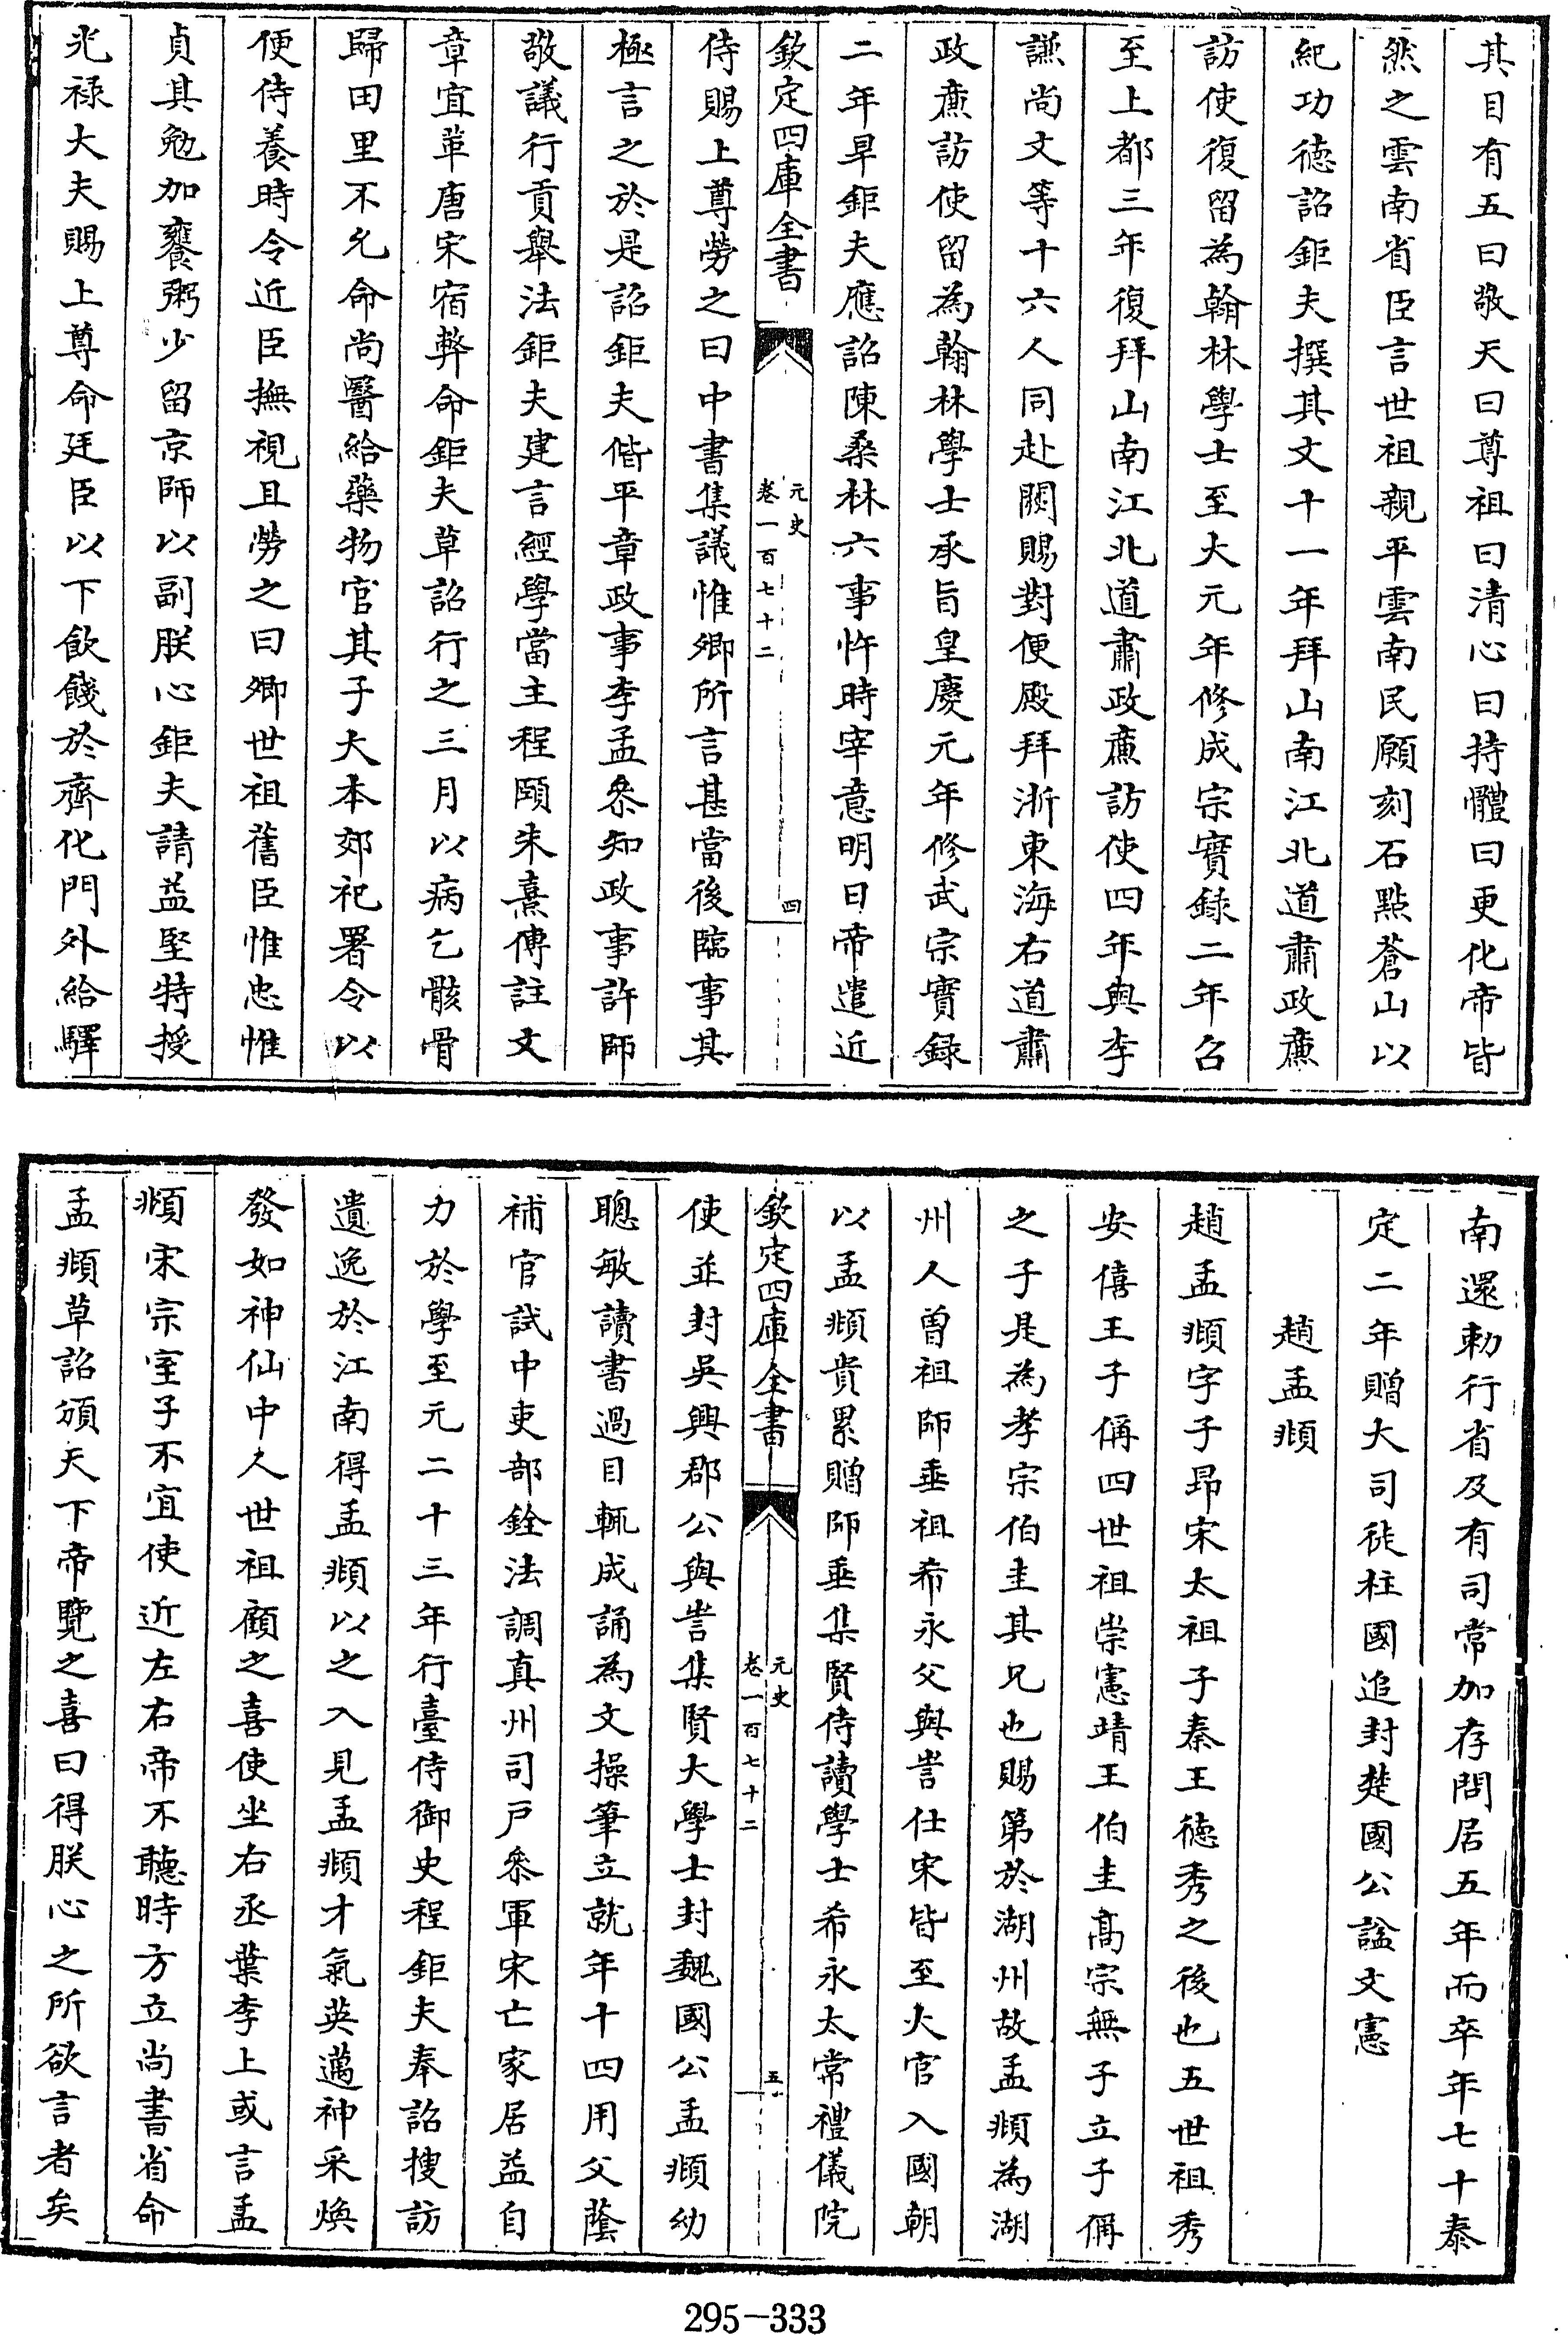 其目有五曰敬天曰尊祖曰清心曰持體曰更化帝皆
然之雲南省臣言世祖親平雲南民願刻石㸃蒼山以
紀功徳詔鉅夫撰其文十一年拜山南江北道肅政廉
訪使復留為翰林學士至大元年修成宗實録二年召
至上都三年復拜山南江北道肅政廉訪使四年與李
謙尚文等十六人同赴闕賜對便殿拜浙東海右道肅
政廉訪使留為翰林學士承㫖皇慶元年修武宗實録
二年旱鉅夫應詔陳桑林六事忤時宰意明日帝遣近
欽定四庫全書
元史
卷一百七十二
四
侍賜上尊勞之曰中書集議惟卿所言甚當後臨事其
極言之於是詔鉅夫偕平章政事李孟叅知政事許師
敬議行貢舉法鉅夫建言經學當主程頤朱熹傳註文
章宜革唐宋宿弊命鉅夫草詔行之三月以病乞骸骨
歸田里不允命尚醫給藥物官其子大本郊祀署令以
便侍養時令近臣撫視且勞之曰卿世祖舊臣惟忠惟
貞其勉加餐粥少留京師以副朕心鉅夫請益堅特授
光禄大夫賜上尊命廷臣以下飲餞於齊化門外給驛
南還勅行省及有司常加存問居五年而卒年七十泰
定二年贈大司徒柱國追封楚國公諡文憲
趙孟頫
趙孟頫字子昂宋太祖子秦王徳秀之後也五世祖秀
安僖王子偁四世祖崇憲靖王伯圭髙宗無子立子偁
之子是為孝宗伯圭其兄也賜第於湖州故孟頫為湖
州人曾祖師垂祖希永父與訔仕宋皆至大官入國朝
以孟頫貴累贈師垂集賢侍讀學士希永太常禮儀院
欽定四庫全書
元史
卷一百七十二
五
使並封吳興郡公與訔集賢大學士封魏國公孟頫幼
聰敏讀書過目輒成誦為文操筆立就年十四用父蔭
補官試中吏部銓法調真州司戸叅軍宋亡家居益自
力於學至元二十三年行臺侍御史程鉅夫奉詔搜訪
遺逸於江南得孟頫以之入見孟頫才氣英邁神采煥
發如神仙中人世祖顧之喜使坐右丞葉李上或言孟
頫宋宗室子不宜使近左右帝不聽時方立尚書省命
孟頫草詔頒天下帝覽之喜曰得朕心之所欲言者矣
295-333